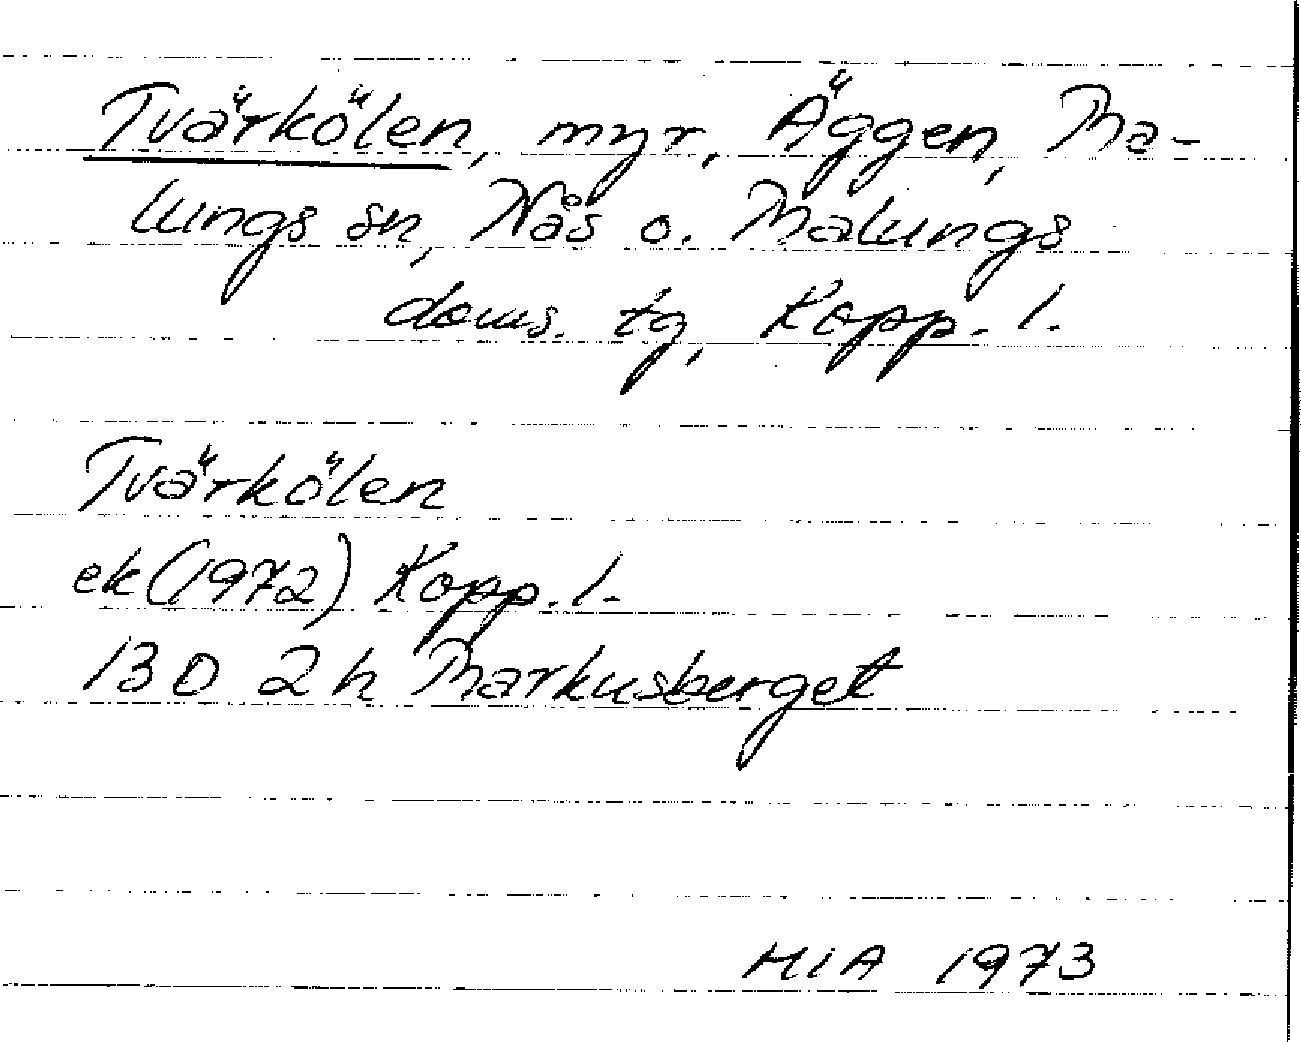 Tvärkölen, myr, Äggen, Ma-
lungs sn, Nås o. Malungs
doms. tg, Kopp. l.
Tvärkölen
ek (1972) Kopp. l.
13D 2h Markusberget
MIA 1973